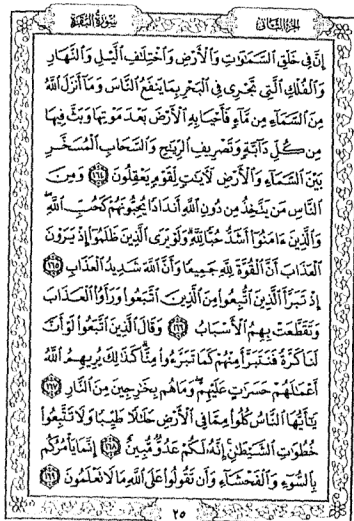 سورة البقرة
الجزء الثاني
إِنَّ فِي خَلْقِ السَّمَٰوَٰتِ وَالْأَرْضِ وَاخْتِلَٰفِ الَّيْلِ وَالنَّهَارِ
وَالْفُلْكِ الَّتِي تَجْرِي فِي الْبَحْرِ بِمَا يَنفَعُ النَّاسَ وَمَا أَنزَلَ اللَّهُ
مِنَ السَّمَاءِ مِن مَّاءٍ فَأَحْيَا بِهِ الْأَرْضَ بَعْدَ مَوْتِهَا وَبَثَّ فِيهَا
مِن كُلِّ دَابَّةٍ وَتَصْرِيفِ الرِّيَٰحِ وَالسَّحَابِ الْمُسَخَّرِ
بَيْنَ السَّمَاءِ وَالْأَرْضِ لَءَايَٰتٍ لِّقَوْمٍ يَعْقِلُونَ ١٦٤ وَمِنَ
النَّاسِ مَن يَتَّخِذُ مِن دُونِ اللَّهِ أَندَادًا يُحِبُّونَهُمْ كَحُبِّ اللَّهِ
وَالَّذِينَ ءَامَنُوا أَشَدُّ حُبًّا لِّلَّهِ وَلَوْ يَرَى الَّذِينَ ظَلَمُوا إِذْ يَرَوْنَ
الْعَذَابَ أَنَّ الْقُوَّةَ لِلَّهِ جَمِيعًا وَأَنَّ اللَّهَ شَدِيدُ الْعَذَابِ ١٦٥
إِذْ تَبَرَّأَ الَّذِينَ اتُّبِعُوا مِنَ الَّذِينَ اتَّبَعُوا وَرَأَوُا الْعَذَابَ
وَتَقَطَّعَتْ بِهِمُ الْأَسْبَابُ ١٦٦ وَقَالَ الَّذِينَ اتَّبَعُوا لَوْ أَنَّ
لَنَا كَرَّةً فَنَتَبَرَّأَ مِنْهُمْ كَمَا تَبَرَّءُوا مِنَّا كَذَٰلِكَ يُرِيهِمُ اللَّهُ
أَعْمَٰلَهُمْ حَسَرَٰتٍ عَلَيْهِمْ وَمَا هُم بِخَٰرِجِينَ مِنَ النَّارِ ١٦٧
يَٰأَيُّهَا النَّاسُ كُلُوا مِمَّا فِي الْأَرْضِ حَلَٰلًا طَيِّبًا وَلَا تَتَّبِعُوا
خُطُوَٰتِ الشَّيْطَٰنِ إِنَّهُ لَكُمْ عَدُوٌّ مُّبِينٌ ١٦٨ إِنَّمَا يَأْمُرُكُم
بِالسُّوءِ وَالْفَحْشَاءِ وَأَن تَقُولُوا عَلَى اللَّهِ مَا لَا تَعْلَمُونَ ١٦٩
٢٥